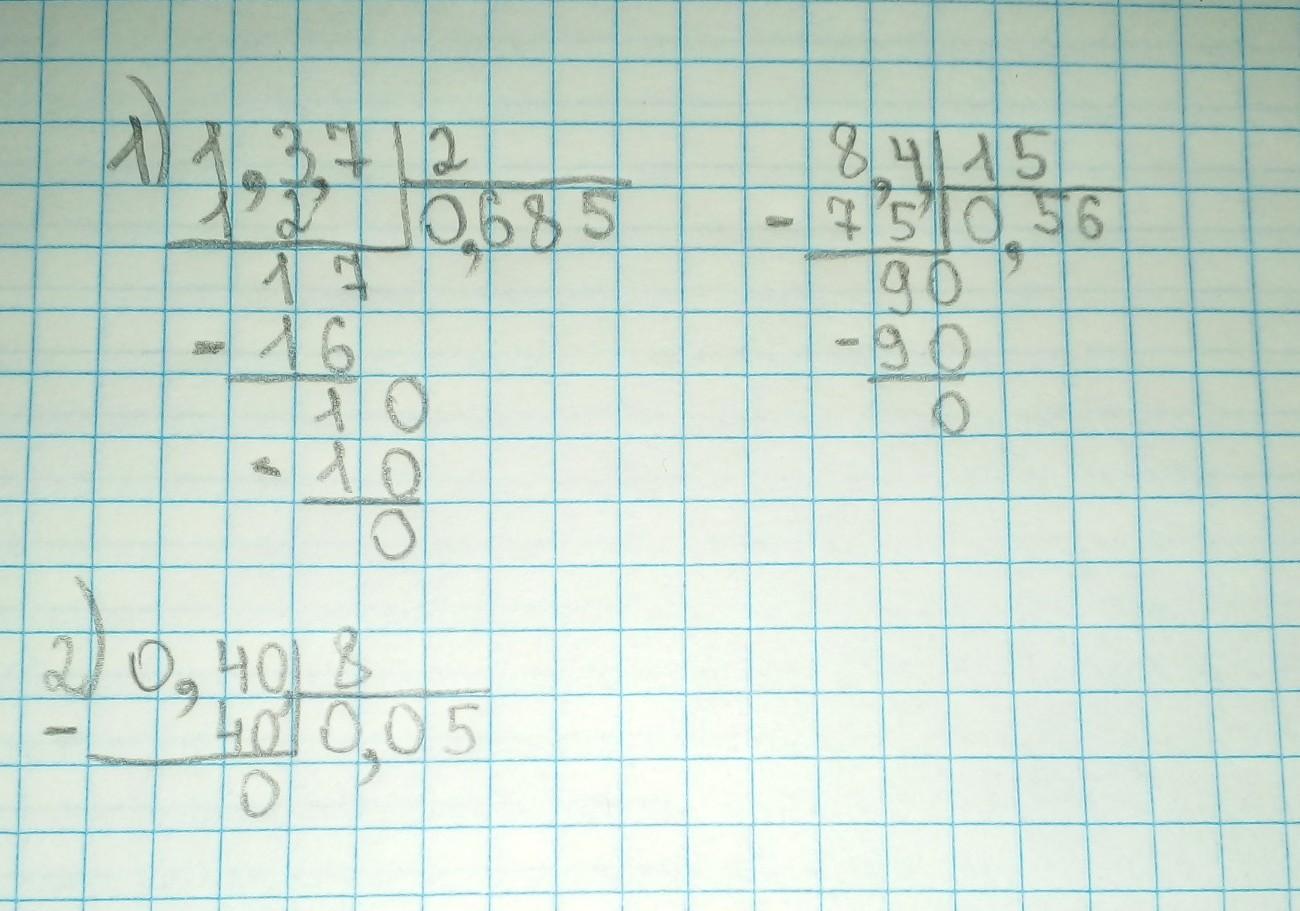 1) 1,3,7 2
1 2, 0,685
1 7
- 16
10
- 10
0
8,4, 15
- 7 5 0,56
90
- 90
0
2) 0,40, 8
- 40 0,05
0